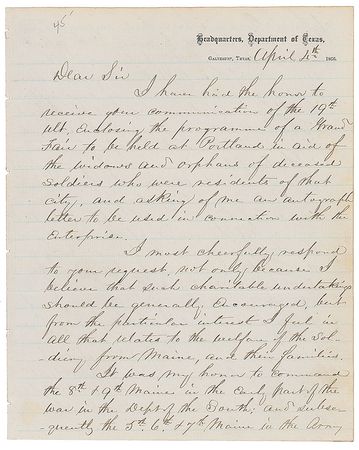 45
Headquarters, Department of Texas,
Galveston, Texas, April 4th 1866.
Dear Sir
I have had the honor to
receive your communication of the 19th
ult, Enclosing the programme of a Grand
Fair to be held at Portland in aid of
the widows and orphans of deceased
Soldiers who were residents of that
city, and asking of me an autograph
letter to be used in connection with the
Enterprise.
I most cheerfully respond
to your request, not only because I
believe that such charitable undertakings
should be generally Encouraged, but
from the particular interest I feel in
all that relates to the welfare of the Sol-
diers from Maine, and their families.
It was my honor to command
the 8th & 9th Maine in the Early part of the
war in the Dept of the South, and subse-
quently the 5th 6th & 7th Maine in the Army